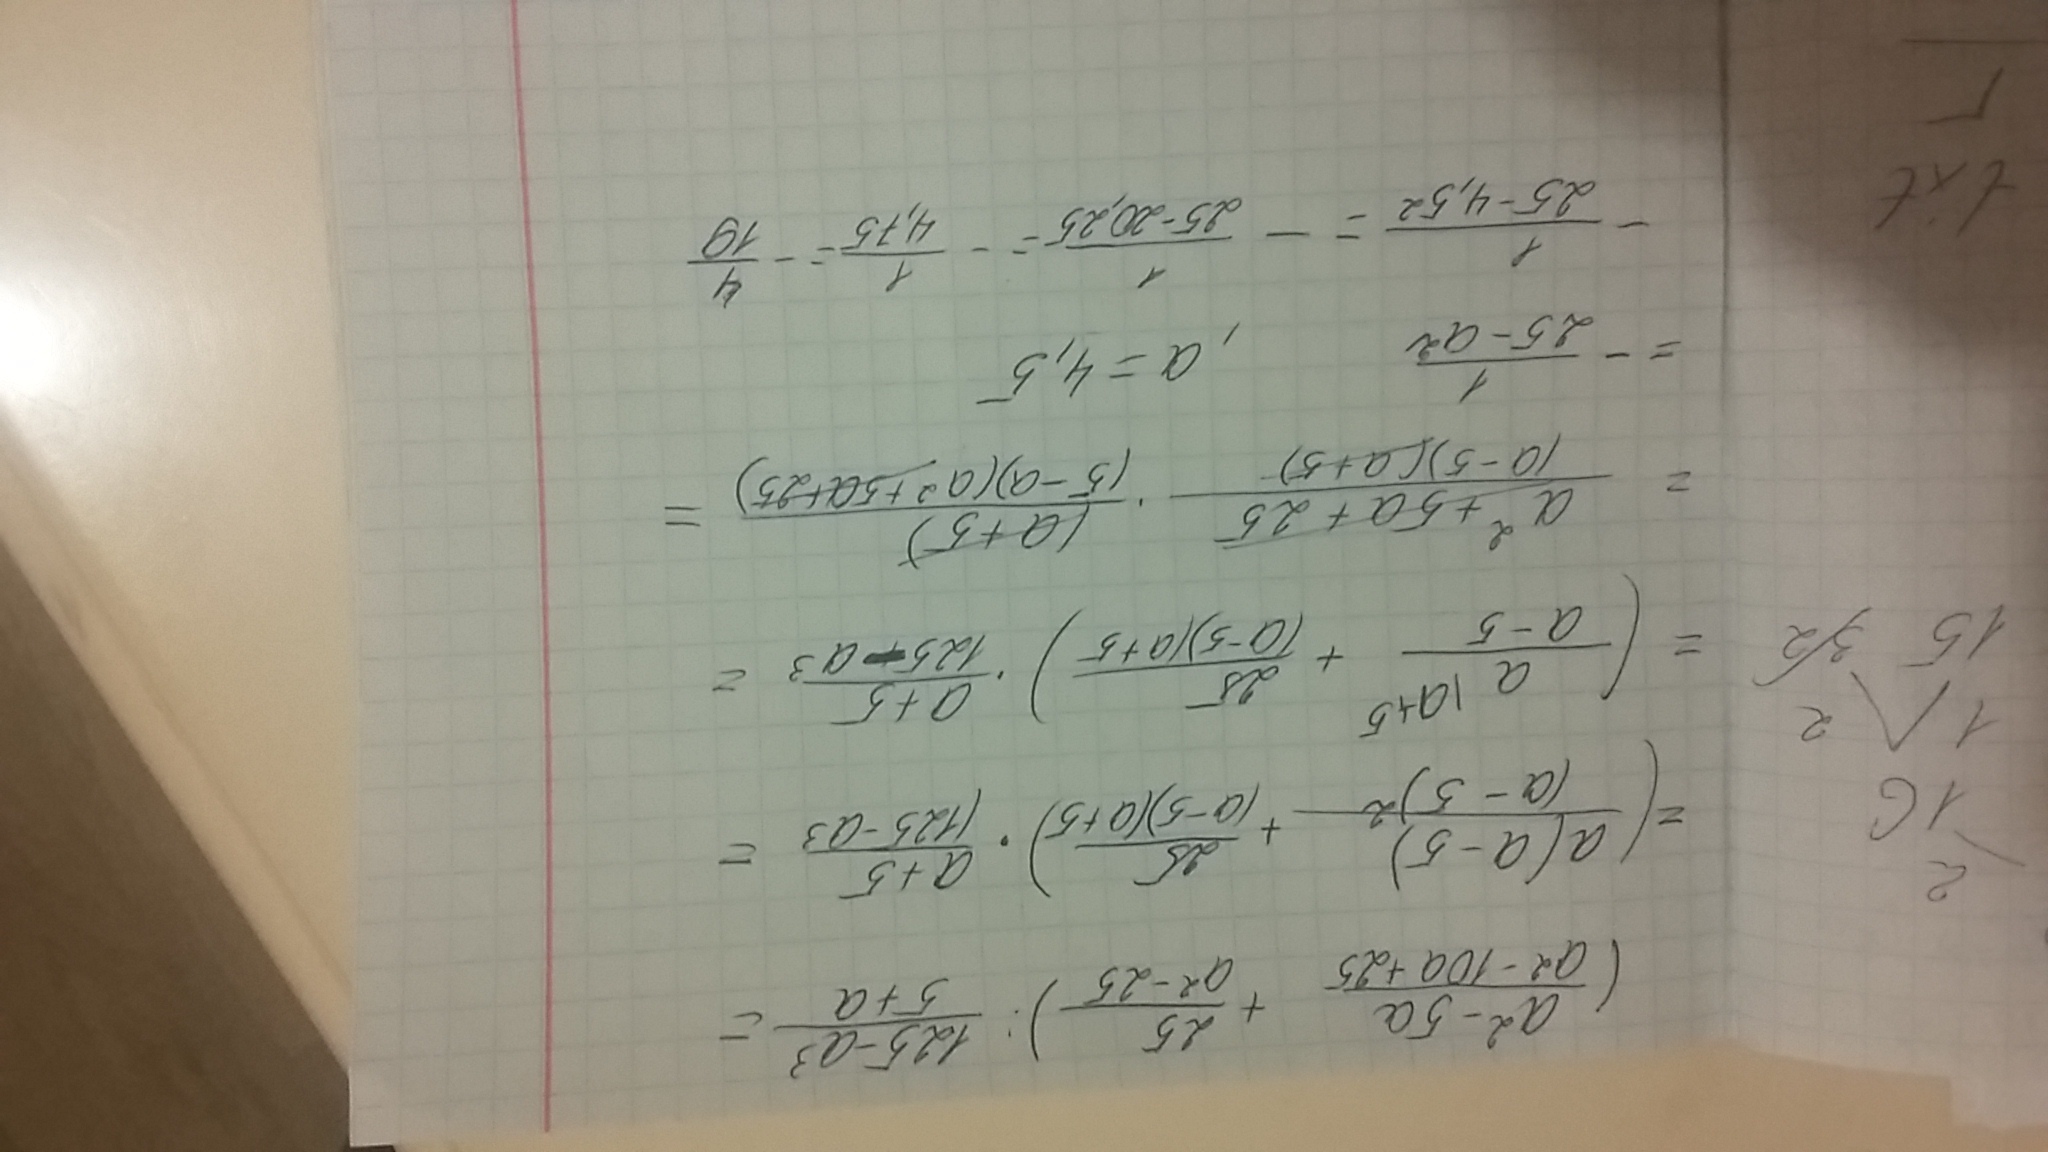 2
1 6
1 2
15 3/2
txt
(a² - 5a / a² - 10a + 25 + 25 / a² - 25) : 125 - a³ / 5 + a =
= (a(a - 5) / (a - 5)² + 25 / (a - 5)(a + 5)) · a + 5 / (125 - a³ =
= (a |a+5 / a - 5 + 25 / (a - 5)(a + 5) · a + 5 / 125 - a³ =
= a² + 5a + 25 / (a - 5)(a + 5) · (a + 5) / (5 - a)(a² + 5a + 25) =
= - 1 / 25 - a² , a = 4,5
- 1 / 25 - 4,5² = - 1 / 25 - 20,25 = - 1 / 4,75 = - 4 / 19